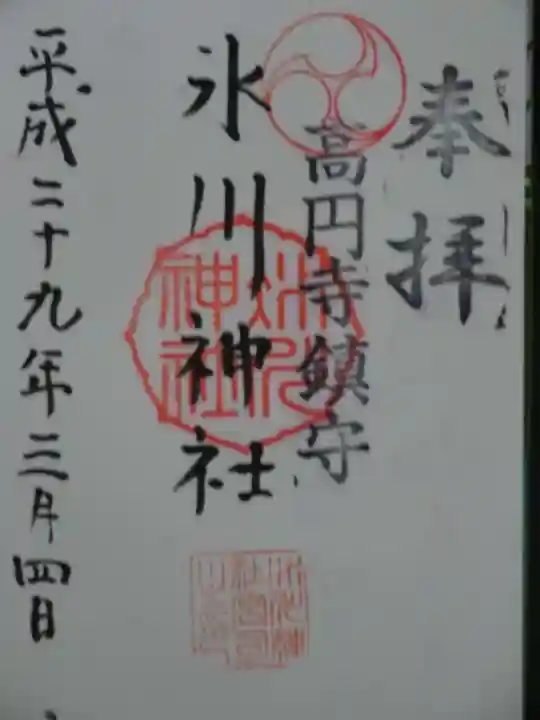 奉拝
高円寺鎮守
氷川神社
平成二十九年三月四日
氷川
神社